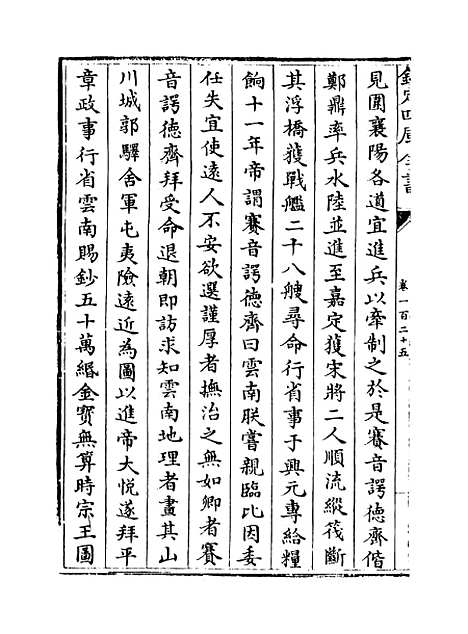 欽定四庫全書
卷一百二十五
見圍襄陽各道宜進兵以牽制之於是賽音諤德齊偕
鄭鼎率兵水陸並進至嘉定獲宋將二人順流縱筏斷
其浮橋獲戰艦二十八艘尋命行省事于興元專給糧
餉十一年帝謂賽音諤德齊曰雲南朕嘗親臨比因委
任失宜使遠人不安欲選謹厚者撫治之無如卿者賽
音諤德齊拜受命退朝即訪求知雲南地理者畫其山
川城郭驛舍軍屯夷險遠近為圖以進帝大悅遂拜平
章政事行省雲南賜鈔五十萬緡金寶無算時宗王圖